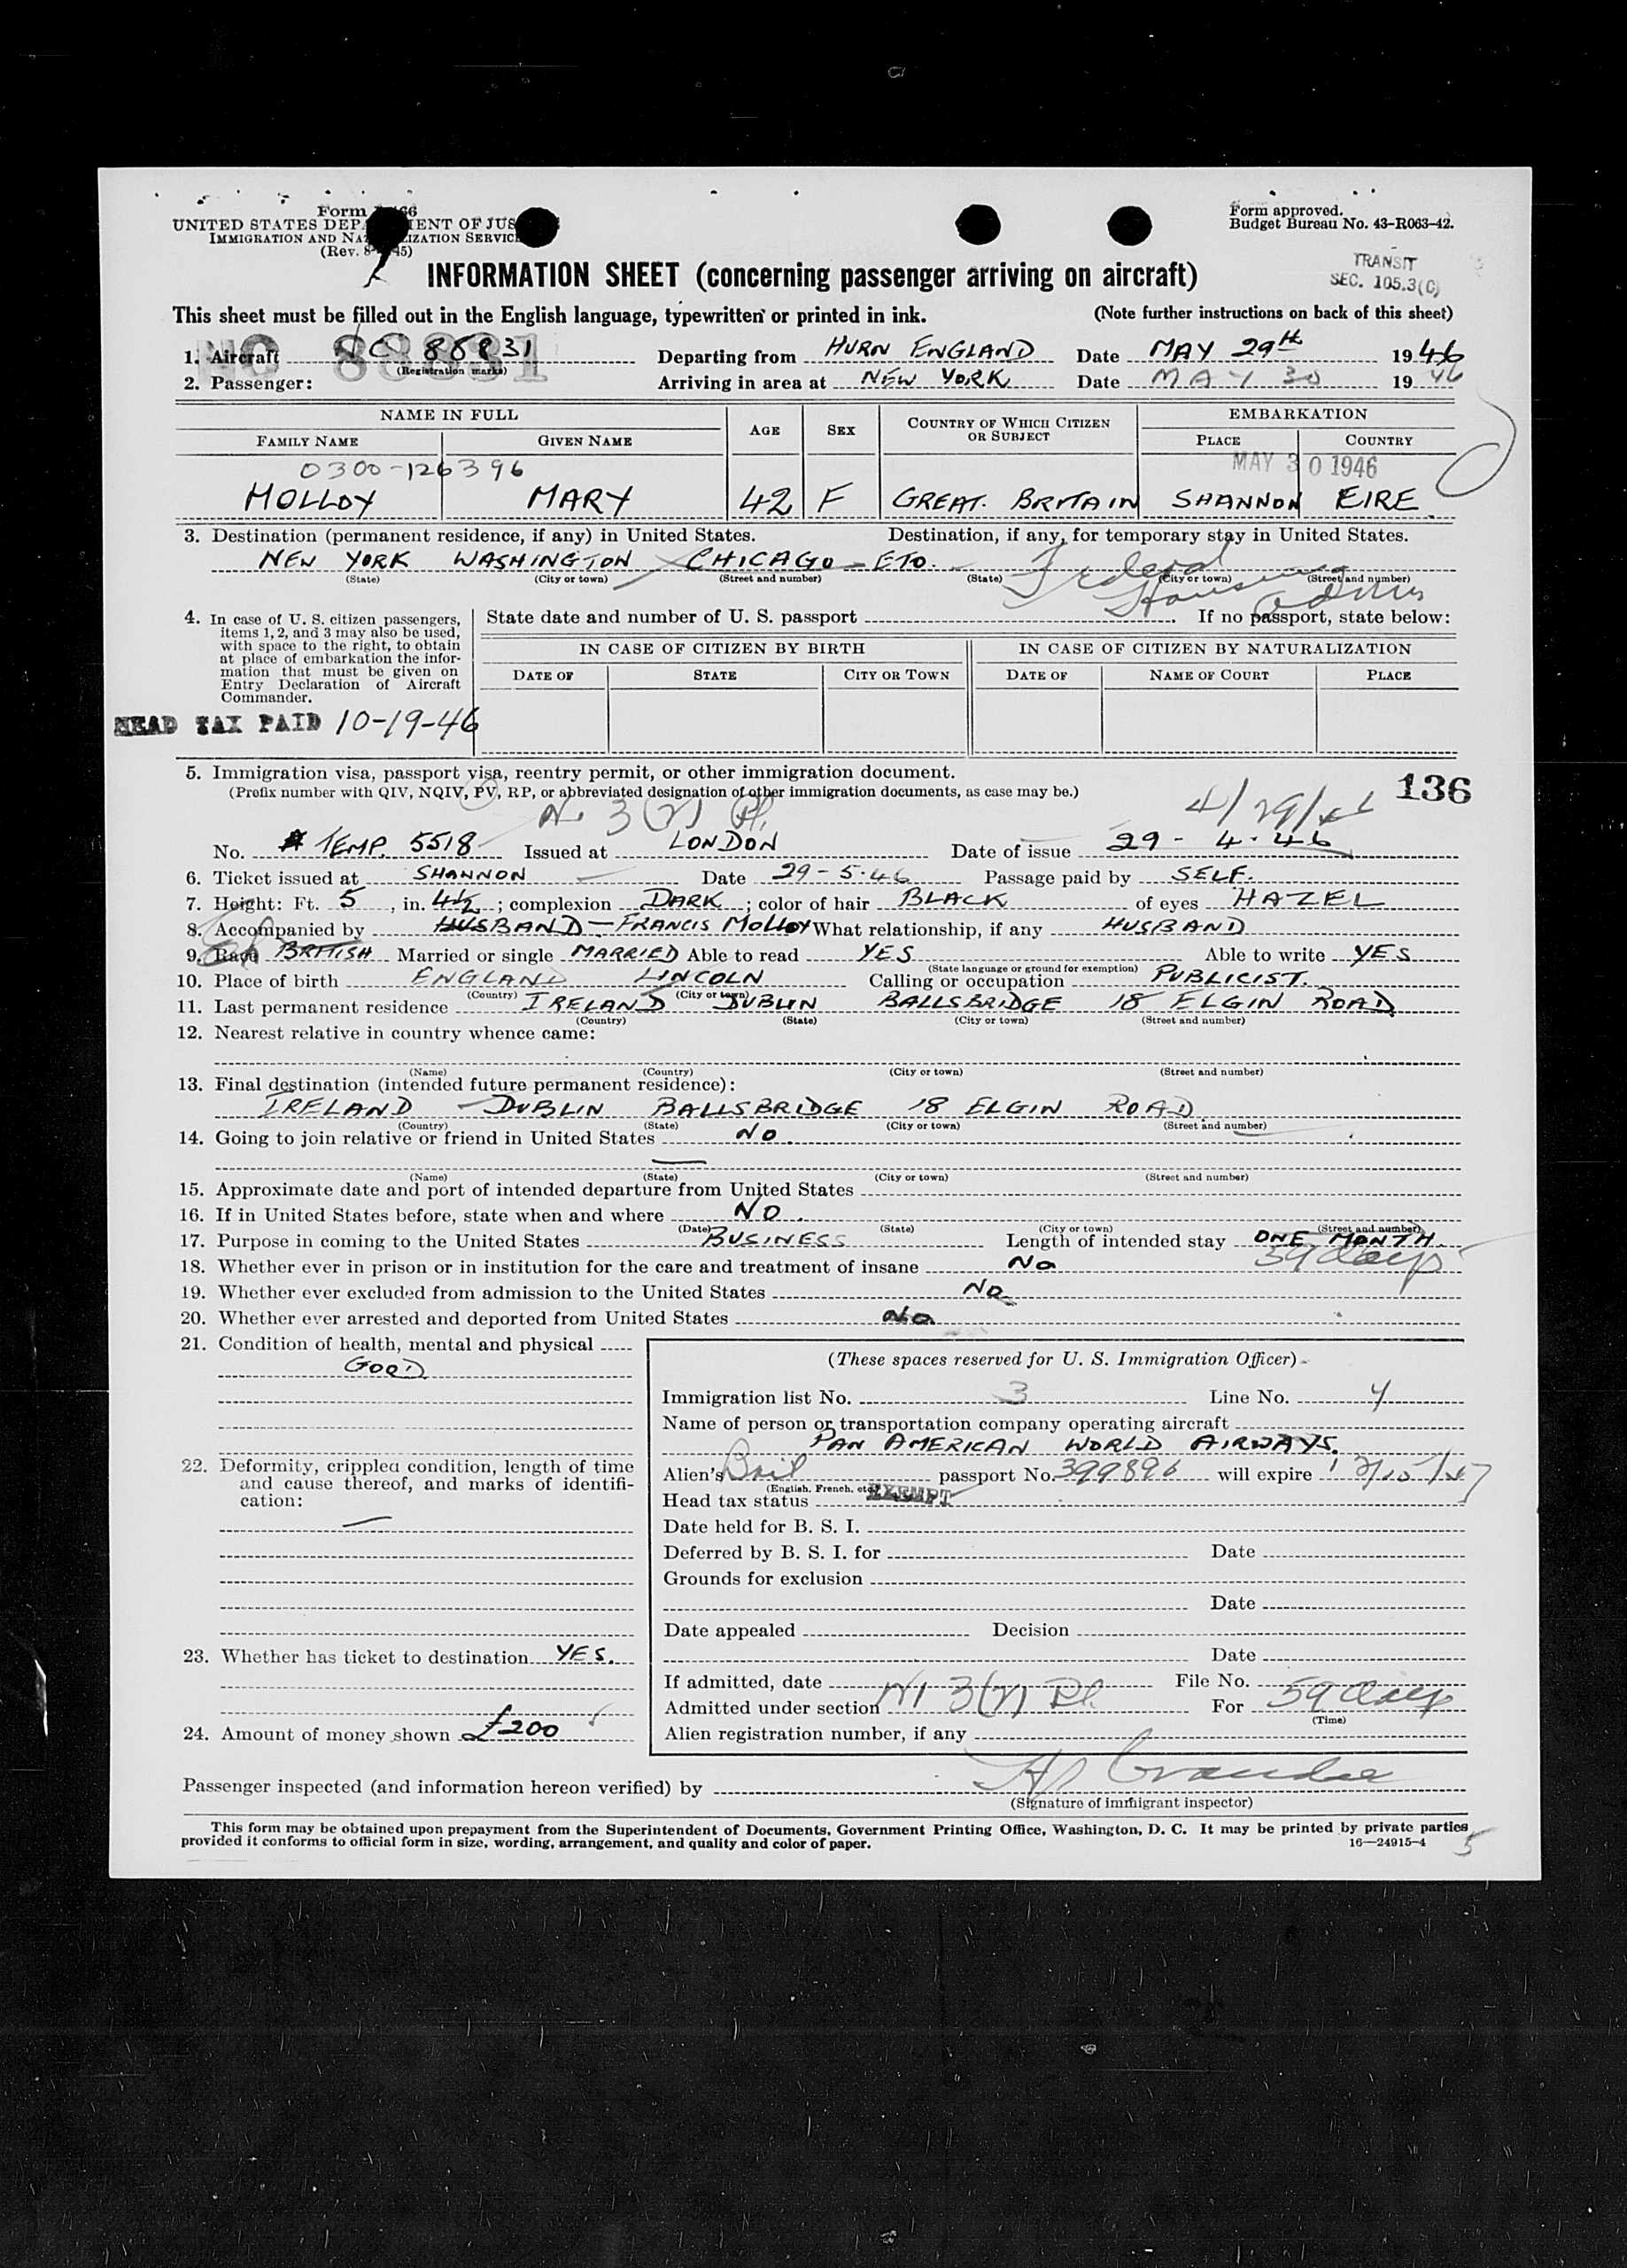 Form I-466
UNITED STATES DEPARTMENT OF JUSTICE
IMMIGRATION AND NATURALIZATION SERVICE
Form approved.
Budget Bureau No. 43-R063-42.
TRANSIT
SEC. 105.3(C)
INFORMATION SHEET (concerning passenger arriving on aircraft)
This sheet must be filled out in the English language, typewritten or printed in ink. (Note further instructions on back of this sheet)
NO 88831
1. Aircraft NC 88831 Departing from HURN ENGLAND Date MAY 29th 1946
(Registration marks)
2. Passenger: Arriving in area at NEW YORK Date MAY 30 1946
NAME IN FULL AGE SEX COUNTRY OF WHICH CITIZEN OR SUBJECT EMBARKATION
FAMILY NAME GIVEN NAME PLACE COUNTRY
0300-126396 MAY 30 1946
MOLLOY MARY 42 F GREAT. BRITAIN SHANNON EIRE
3. Destination (permanent residence, if any) in United States. Destination, if any, for temporary stay in United States.
NEW YORK WASHINGTON CHICAGO - ETC. Federal
(State) (City or town) (Street and number) (State) (City or town) (Street and number)
Housing Admin
4. In case of U. S. citizen passengers, items 1, 2, and 3 may also be used, with space to the right, to obtain at place of embarkation the information that must be given on Entry Declaration of Aircraft Commander.
State date and number of U. S. passport If no passport, state below:
IN CASE OF CITIZEN BY BIRTH IN CASE OF CITIZEN BY NATURALIZATION
DATE OF STATE CITY OR TOWN DATE OF NAME OF COURT PLACE
HEAD TAX PAID 10-19-46
5. Immigration visa, passport visa, reentry permit, or other immigration document.
136
(Prefix number with QIV, NQIV, PV, RP, or abbreviated designation of other immigration documents, as case may be.)
3(2) Pl. 4/29/46
No. TEMP. 5518 Issued at LONDON Date of issue 29-4-46
6. Ticket issued at SHANNON Date 29-5-46 Passage paid by SELF.
7. Height: Ft. 5, in. 4½; complexion DARK; color of hair BLACK of eyes HAZEL
8. Accompanied by HUSBAND - FRANCIS MOLLOY What relationship, if any HUSBAND
9. Race BRITISH Married or single MARRIED Able to read YES Able to write YES
(State language or ground for exemption)
10. Place of birth ENGLAND LINCOLN Calling or occupation PUBLICIST.
(Country) (City or town)
11. Last permanent residence IRELAND DUBLIN BALLSBRIDGE 18 ELGIN ROAD
(Country) (State) (City or town) (Street and number)
12. Nearest relative in country whence came:
(Name) (Country) (City or town) (Street and number)
13. Final destination (intended future permanent residence):
IRELAND - DUBLIN BALLSBRIDGE 18 ELGIN ROAD
(Country) (State) (City or town) (Street and number)
14. Going to join relative or friend in United States NO.
(Name) (State) (City or town) (Street and number)
15. Approximate date and port of intended departure from United States
16. If in United States before, state when and where NO.
(Date) (State) (City or town) (Street and number)
17. Purpose in coming to the United States BUSINESS Length of intended stay ONE MONTH.
59 days
18. Whether ever in prison or in institution for the care and treatment of insane No
19. Whether ever excluded from admission to the United States NO
20. Whether ever arrested and deported from United States No
21. Condition of health, mental and physical
GOOD
22. Deformity, crippled condition, length of time and cause thereof, and marks of identification:
—
23. Whether has ticket to destination YES.
24. Amount of money shown £200
(These spaces reserved for U. S. Immigration Officer)
Immigration list No. 3 Line No. 4
Name of person or transportation company operating aircraft
PAN AMERICAN WORLD AIRWAYS.
Alien's Brit passport No. 399896 will expire
(English, French, etc.)
Head tax status EXEMPT
Date held for B. S. I.
Deferred by B. S. I. for Date
Grounds for exclusion
Date
Date appealed Decision
Date
If admitted, date File No.
Admitted under section 3(2) Pl For 59 days
(Time)
Alien registration number, if any
Passenger inspected (and information hereon verified) by
(Signature of immigrant inspector)
This form may be obtained upon prepayment from the Superintendent of Documents, Government Printing Office, Washington, D. C. It may be printed by private parties
provided it conforms to official form in size, wording, arrangement, and quality and color of paper. 16—24915-4
5